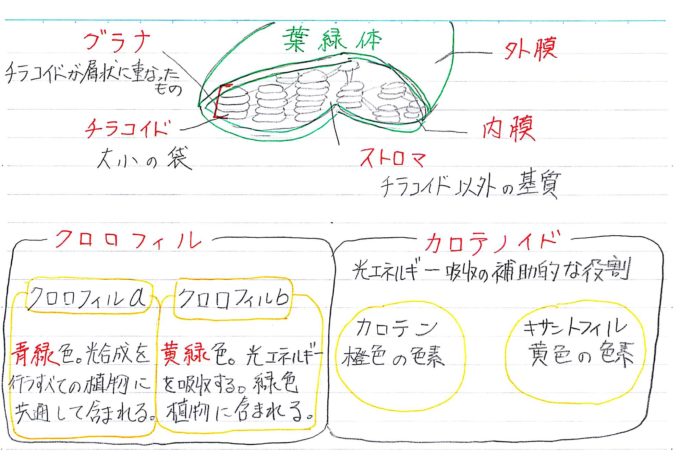 グラナ
チラコイドが層状に重なった
もの
葉緑体
外膜
チラコイド
大小の袋
内膜
ストロマ
チラコイド以外の基質
クロロフィル
クロロフィルa
青緑色。光合成を
行うすべての植物に
共通して含まれる。
クロロフィルb
黄緑色。光エネルギー
を吸収する。緑色
植物に含まれる。
カロテノイド
光エネルギー吸収の補助的な役割
カロテン
橙色の色素
キサントフィル
黄色の色素